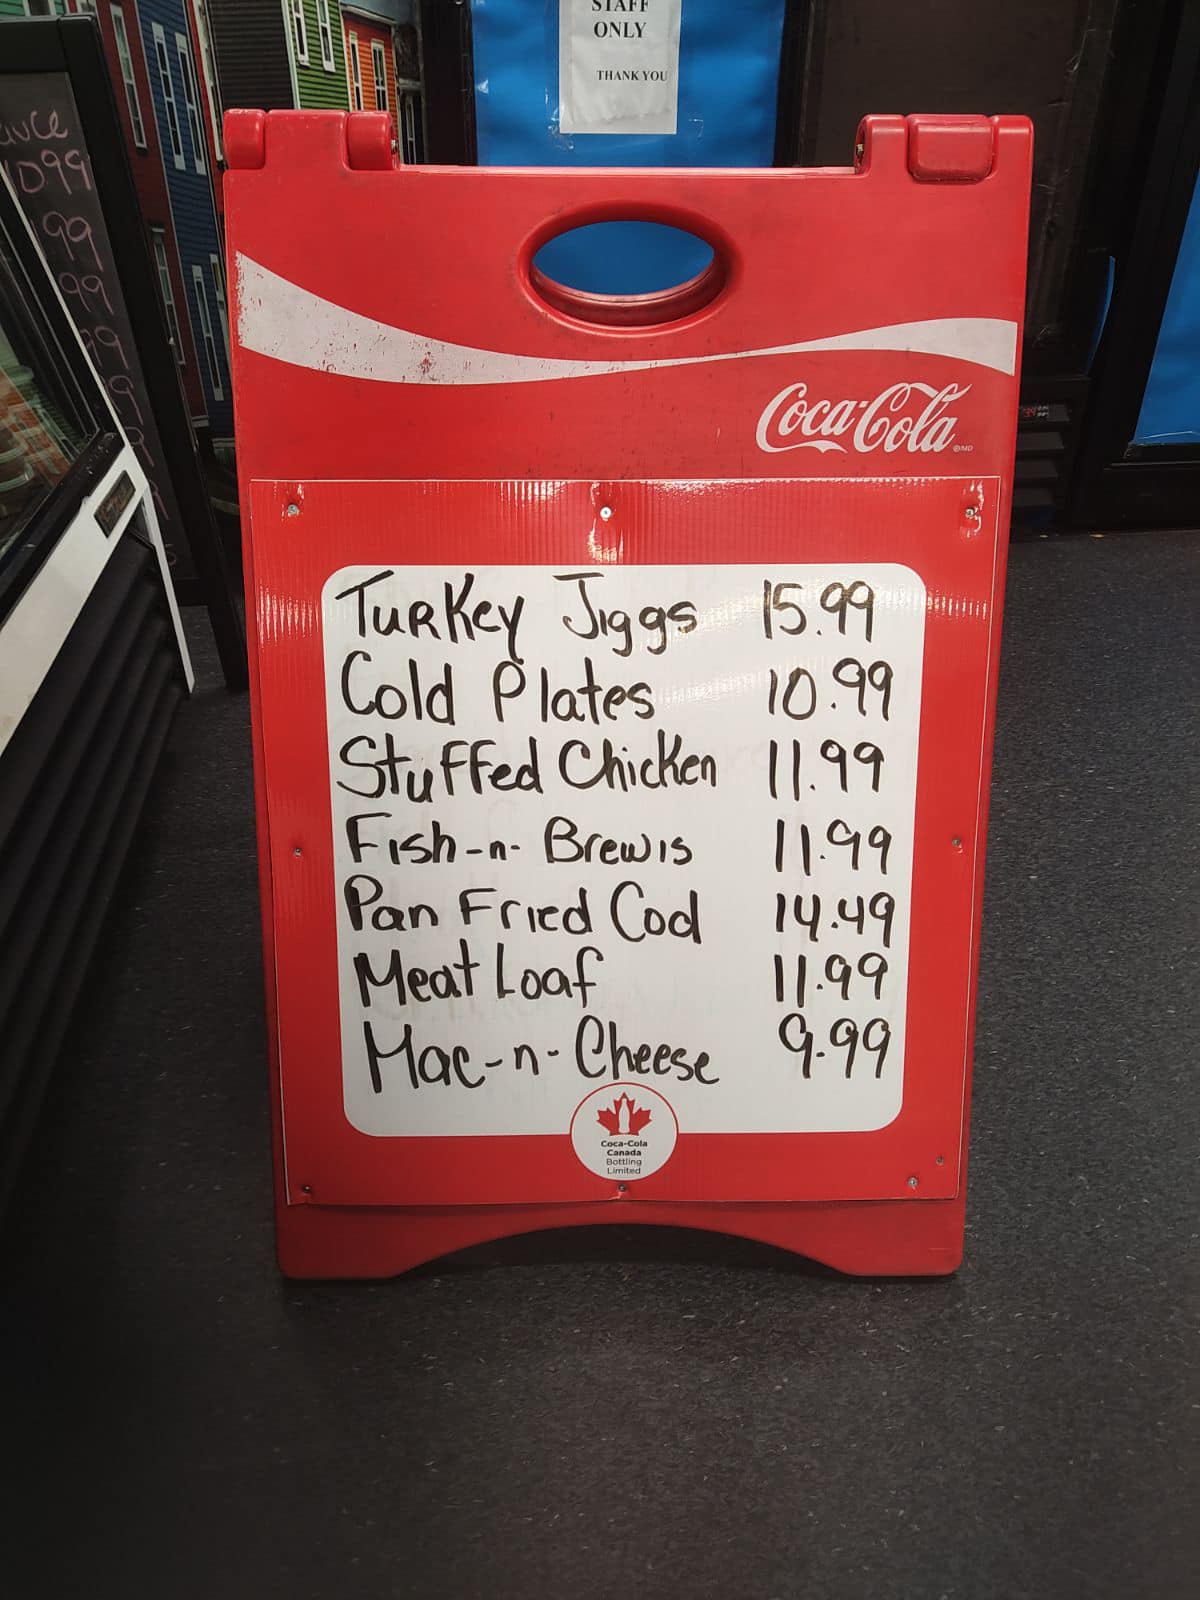 STAFF
ONLY
THANK YOU
1099
99
99
99
Coca-Cola
Turkey Jiggs 15.99
Cold Plates 10.99
Stuffed Chicken 11.99
Fish-n-Brewis 11.99
Pan Fried Cod 14.49
Meat Loaf 11.99
Mac-n-Cheese 9.99
Coca-Cola
Canada
Bottling
Limited